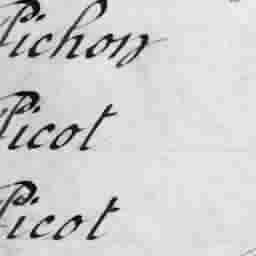 Pichon
Picot
Picot